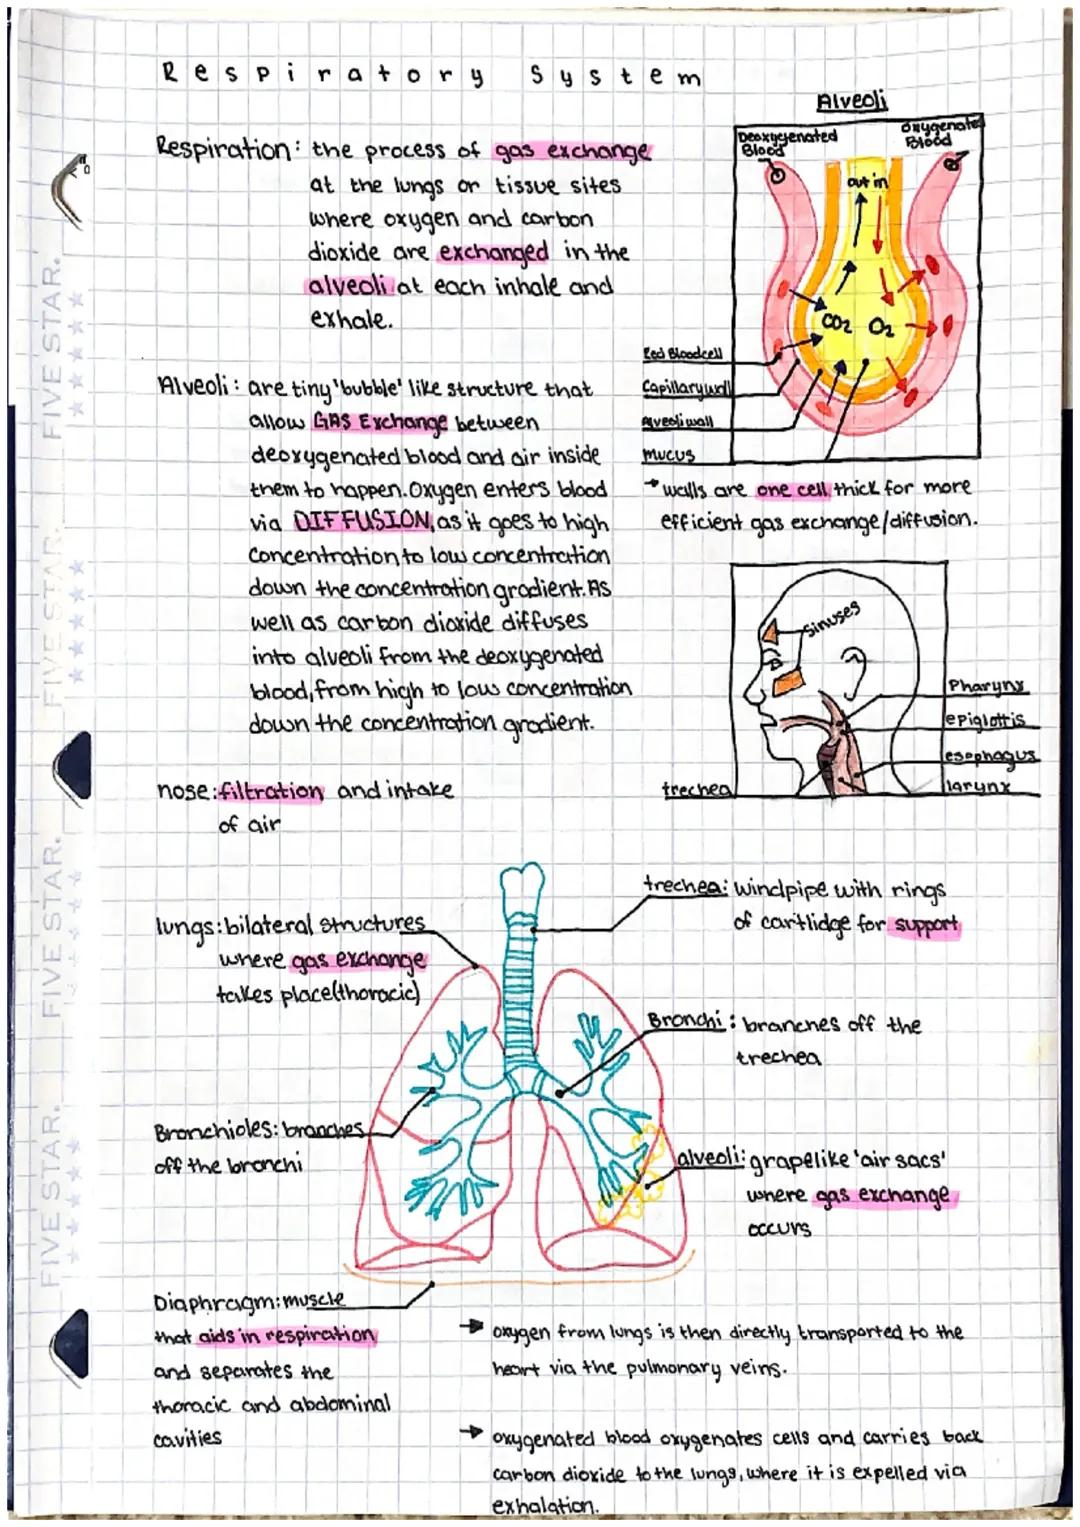 Respiratory System
Respiration: the process of gas exchange
at the lungs or tissue sites
where oxygen and carbon
dioxide are exchanged in the
alveoli at each inhale and
exhale.
Alveoli
Deoxygenated
Blood
Oxygenated
Blood
out in
CO2 O2
Red Bloodcell
Capillary wall
Alveoli wall
mucus
→ walls are one cell thick for more
efficient gas exchange/diffusion.
Alveoli: are tiny 'bubble' like structure that
allow GAS Exchange between
deoxygenated blood and air inside
them to happen. Oxygen enters blood
via DIFFUSION, as it goes to high
concentration to low concentration
down the concentration gradient. As
well as carbon dioxide diffuses
into alveoli from the deoxygenated
blood, from high to low concentration
down the concentration gradient.
Sinuses
Pharynx
epiglottis
esophagus
larynx
trechea
nose: filtration and intake
of air
trechea: windpipe with rings
of cartlidge for support
lungs: bilateral structures
where gas exchange
takes place(thoracic)
Bronchi: branches off the
trechea
Bronchioles: branches
off the bronchi
alveoli: grapelike 'air sacs'
where gas exchange
occurs
Diaphragm: muscle
that aids in respiration
and separates the
thoracic and abdominal
cavities
→ oxygen from lungs is then directly transported to the
heart via the pulmonary veins.
→ oxygenated blood oxygenates cells and carries back
carbon dioxide to the lungs, where it is expelled via
exhalation.
FIVE STAR.
FIVE STAR.
FIVE STAR.
FIVE STAR.